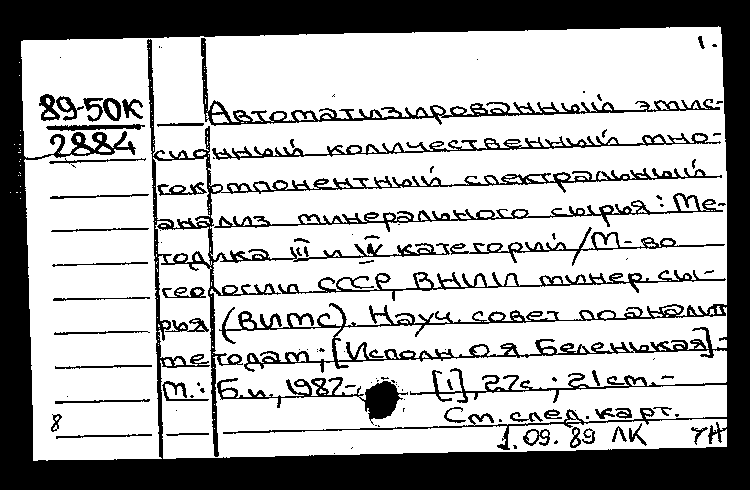 1.
89-50К
2884
Автоматизированный эмис-
сионный количественный мно-
гокомпонентный спектральный
анализ минерального сырья: Ме-
тодика III и IV категорий / М-во
геологии СССР, ВНИИ минер. сы-
рья (ВИМС). Науч. совет по аналит.
методам; [Исполн. О.Я. Беленькая].-
М.: Б.и., 1987.- [1], 27с.; 21см.-
См. след. карт.
8
1.09.89 ЛК УН